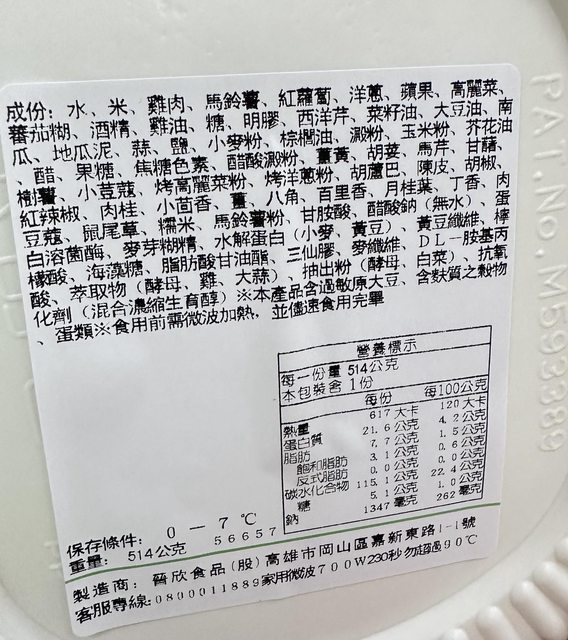 成份: 水、米、雞肉、馬鈴薯、紅蘿蔔、洋蔥、蘋果、高麗菜、
蕃茄糊、酒精、雞油、糖、明膠、西洋芹、菜籽油、大豆油、南
瓜、地瓜泥、蒜、鹽、小麥粉、棕櫚油、澱粉、玉米粉、芥花油
、醋、果糖、焦糖色素、醋酸澱粉、薑黃、胡荽、馬芹、甘藷、
樹薯、小荳蔻、烤高麗菜粉、烤洋蔥粉、胡蘆巴、陳皮、胡椒、
紅辣椒、肉桂、小茴香、薑、八角、百里香、月桂葉、丁香、肉
豆蔻、鼠尾草、糯米、馬鈴薯粉、甘胺酸、醋酸鈉（無水）、蛋
白溶菌酶、麥芽糊精、水解蛋白（小麥、黃豆）、黃豆纖維、檸
檬酸、海藻糖、脂肪酸甘油酯、三仙膠、麥纖維、DL－胺基丙
酸、萃取物（酵母、雞、大蒜）、抽出粉（酵母、白菜）、抗氧
化劑（混合濃縮生育醇）※本產品含過敏原大豆、含麩質之穀物
、蛋類※食用前需微波加熱，並儘速食用完畢
營養標示
每一份量 514公克
本包裝含 1份
每份 每100公克
熱量 617 大卡 120 大卡
蛋白質 21.6 公克 4.2 公克
脂肪 7.7 公克 1.5 公克
飽和脂肪 3.1 公克 0.6 公克
反式脂肪 0.0 公克 0.0 公克
碳水化合物 115.1 公克 22.4 公克
糖 5.1 公克 1.0 公克
鈉 1347 毫克 262 毫克
保存條件: 0－7℃
重量: 514公克 56657
製造商: 晉欣食品(股)高雄市岡山區嘉新東路1-1號
客服專線:0800011889家用微波700W230秒勿超過90℃
PAT.No.M593389